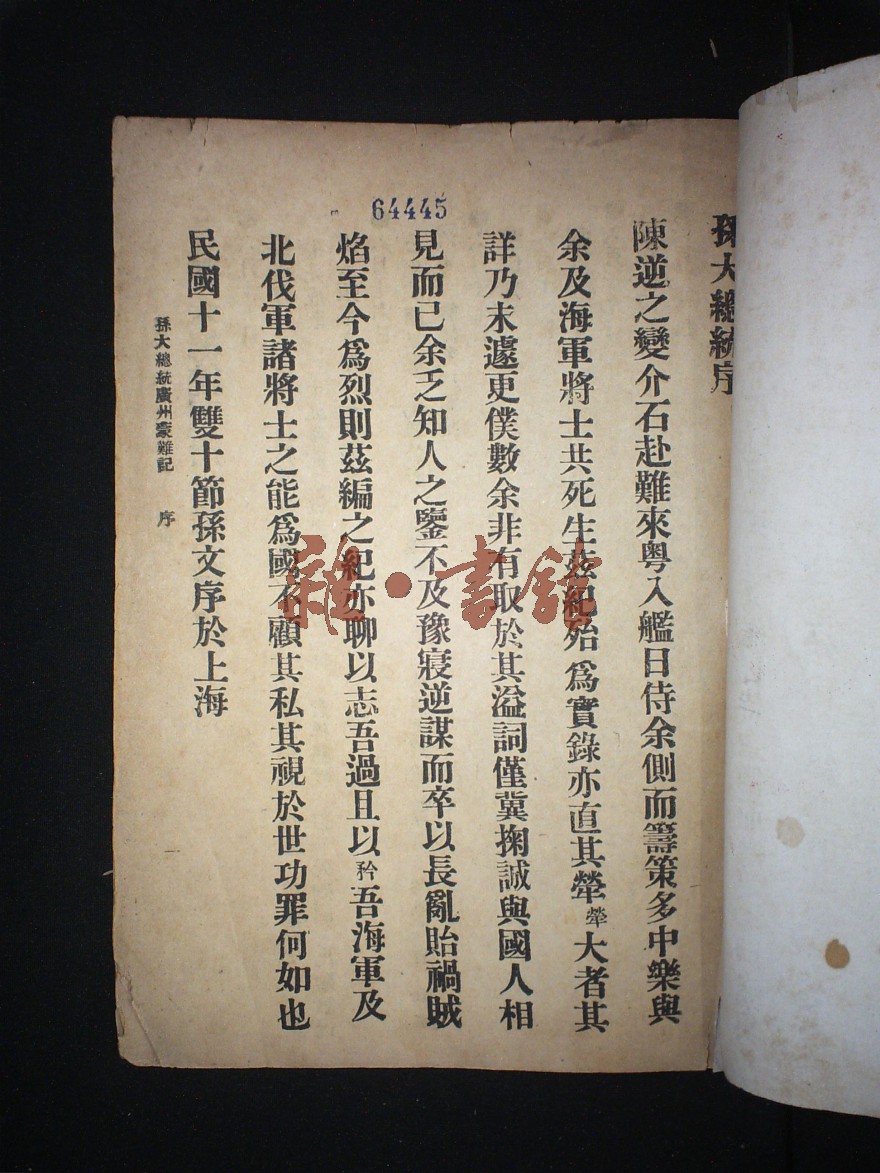 孫大總統序
陳逆之變介石赴難來粤入艦日侍余側而籌策多中樂與
余及海軍將士共死生茲紀殆爲實錄亦直其犖犖大者其
詳乃未遽更僕數余非有取於其溢詞僅冀掬誠與國人相
見而已余乏知人之鑒不及豫寢逆謀而卒以長亂貽禍賊
焰至今爲烈則茲編之紀亦聊以志吾過且以矜吾海軍及
北伐軍諸將士之能爲國不顧其私其視於世功罪何如也
民國十一年雙十節孫文序於上海
孫大總統廣州蒙難記 序
一
64445
雜·書館